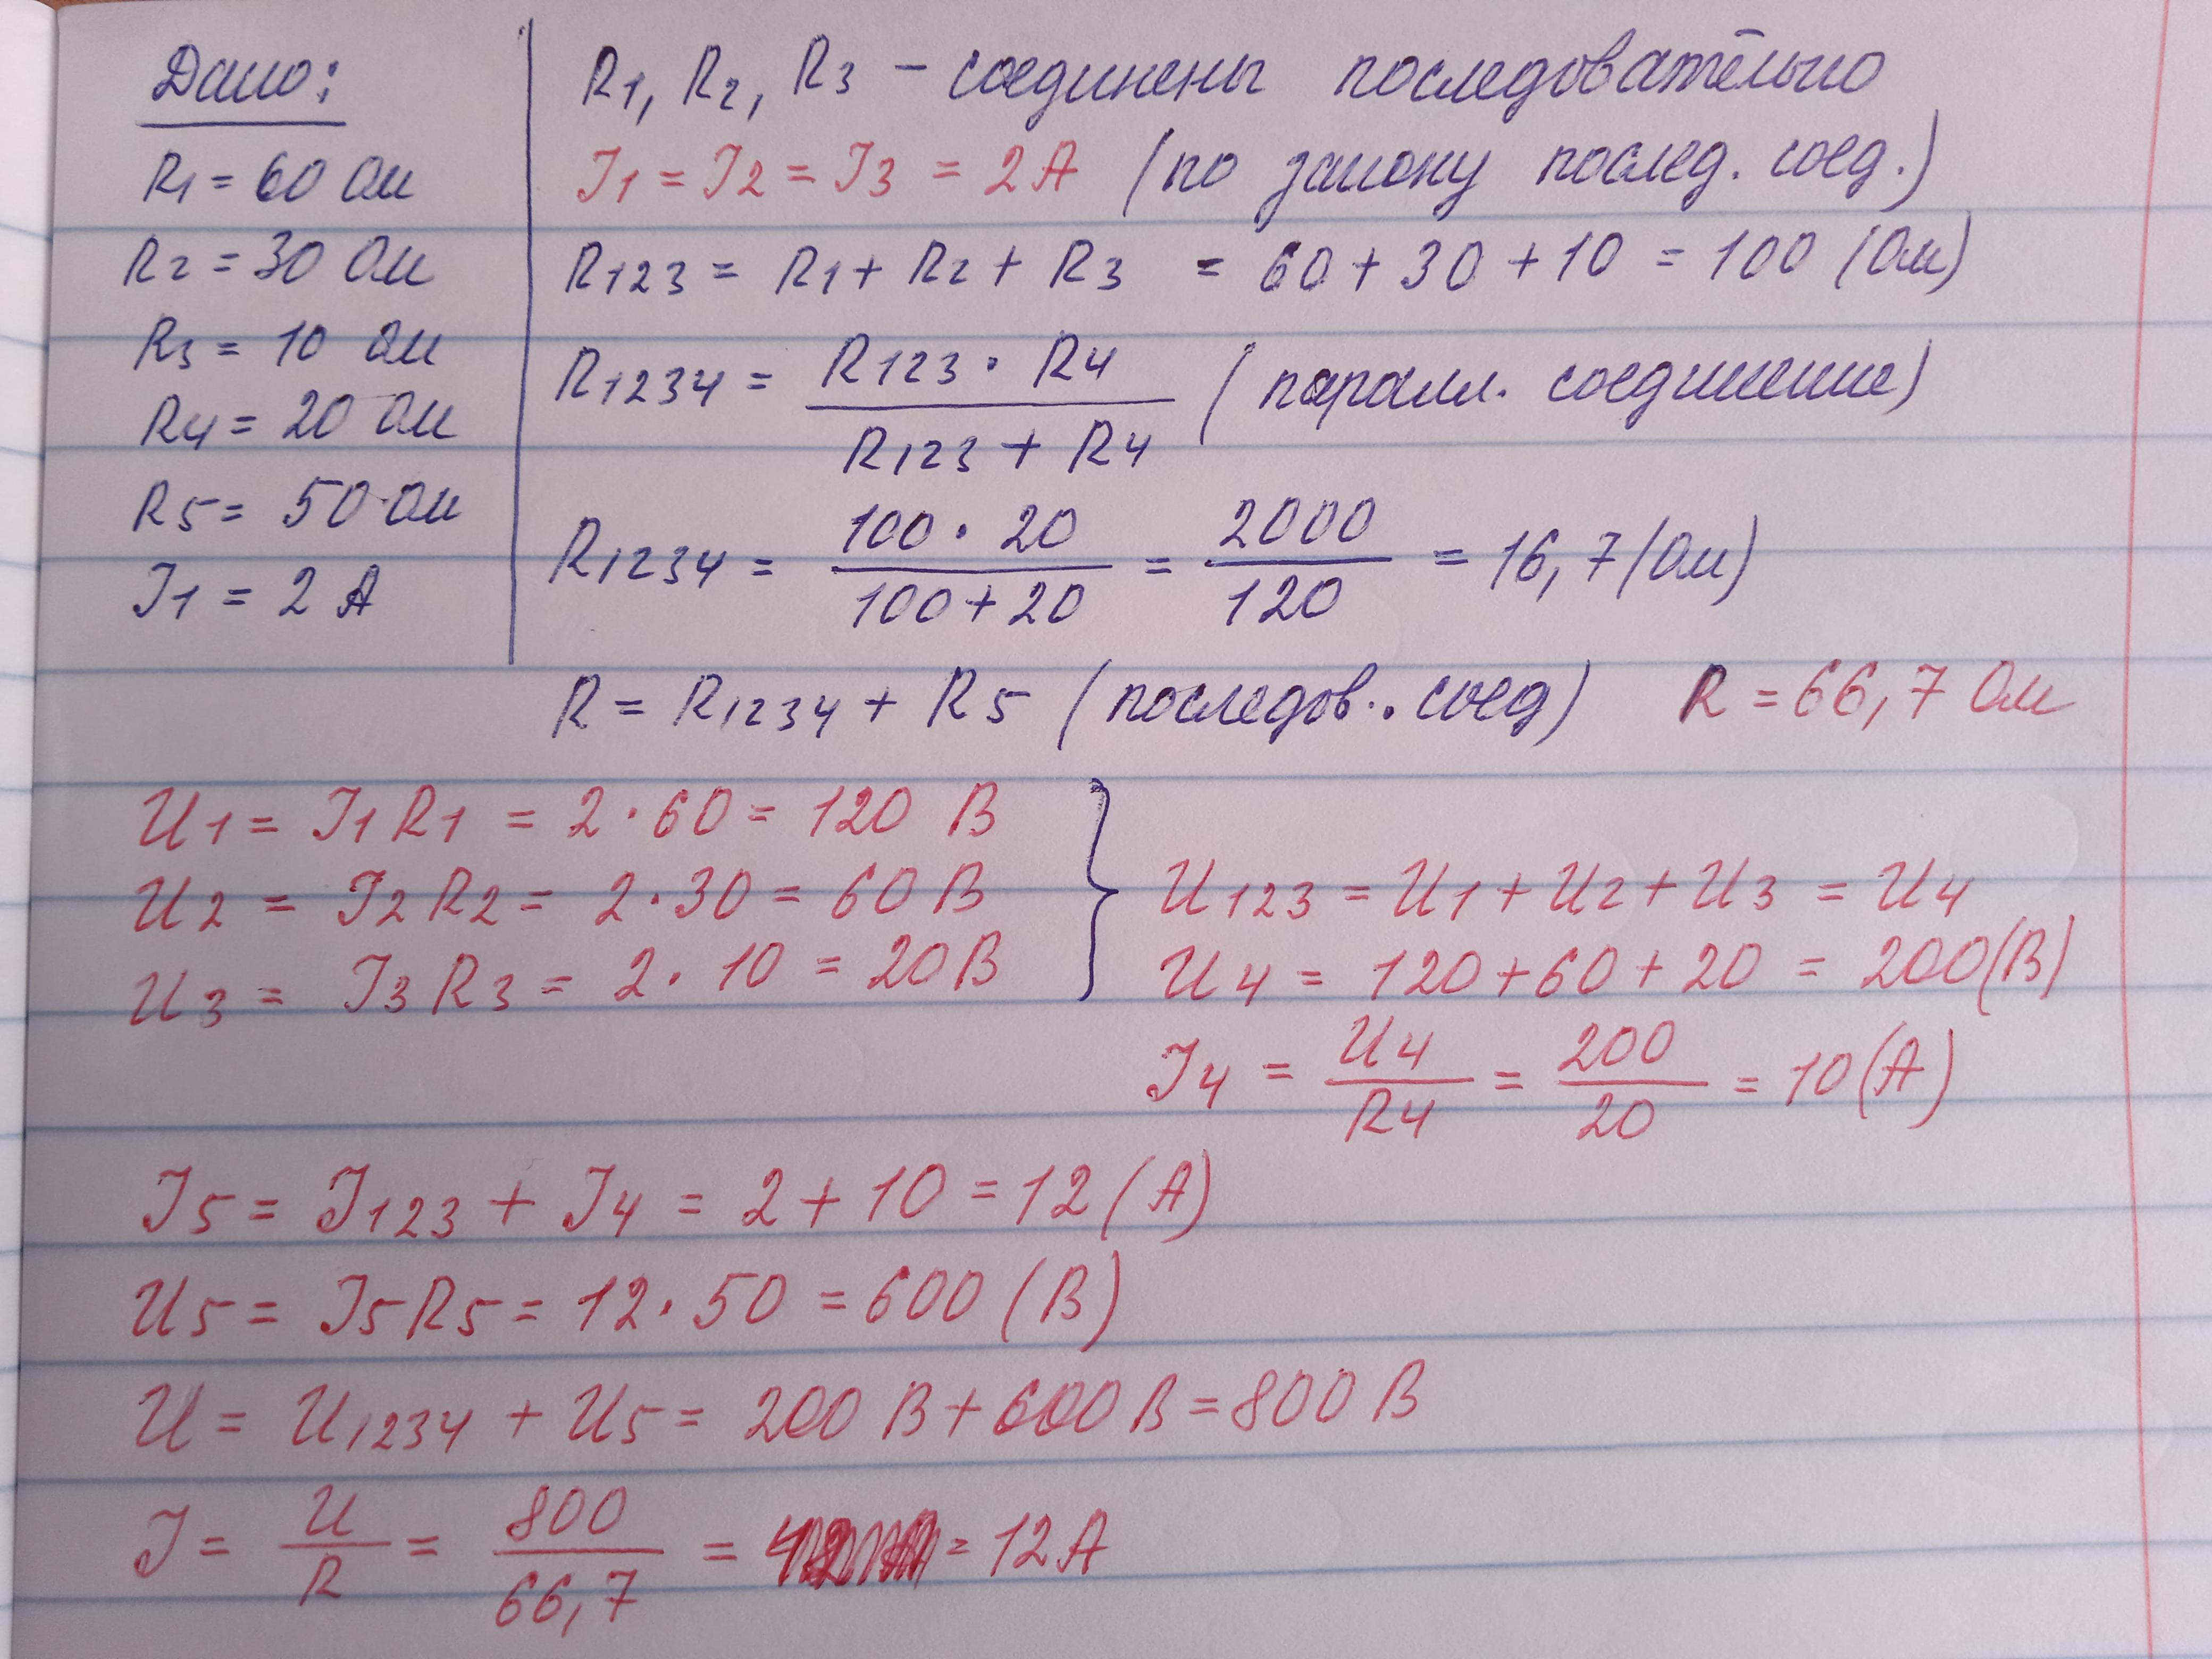 Дано:
R1 = 60 Ом
R2 = 30 Ом
R3 = 10 Ом
R4 = 20 Ом
R5 = 50 Ом
I1 = 2 А
R1, R2, R3 – соединены последовательно
I1 = I2 = I3 = 2 А (по закону послед. соед.)
R123 = R1 + R2 + R3 = 60 + 30 + 10 = 100 (Ом)
R1234 = R123 · R4 / R123 + R4 (паралл. соединение)
R1234 = 100 · 20 / 100 + 20 = 2000 / 120 = 16,7 (Ом)
R = R1234 + R5 (последов.. соед) R = 66,7 Ом
U1 = I1 R1 = 2 · 60 = 120 В
U2 = I2 R2 = 2 · 30 = 60 В
U3 = I3 R3 = 2 · 10 = 20 В
U123 = U1 + U2 + U3 = U4
U4 = 120 + 60 + 20 = 200 (В)
I4 = U4 / R4 = 200 / 20 = 10 (А)
I5 = I123 + I4 = 2 + 10 = 12 (А)
U5 = I5 R5 = 12 · 50 = 600 (В)
U = U1234 + U5 = 200 В + 600 В = 800 В
I = U / R = 800 / 66,7 = = 12 А